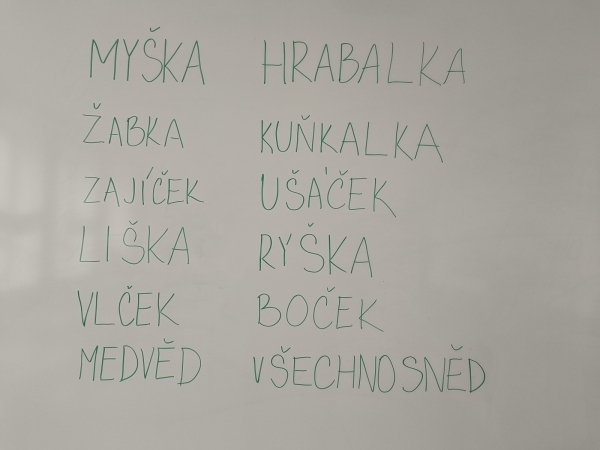 MYŠKA HRABALKA
ŽABKA KUŇKALKA
ZAJÍČEK UŠÁČEK
LIŠKA RYŠKA
VLČEK BOČEK
MEDVĚD VŠECHNOSNĚD